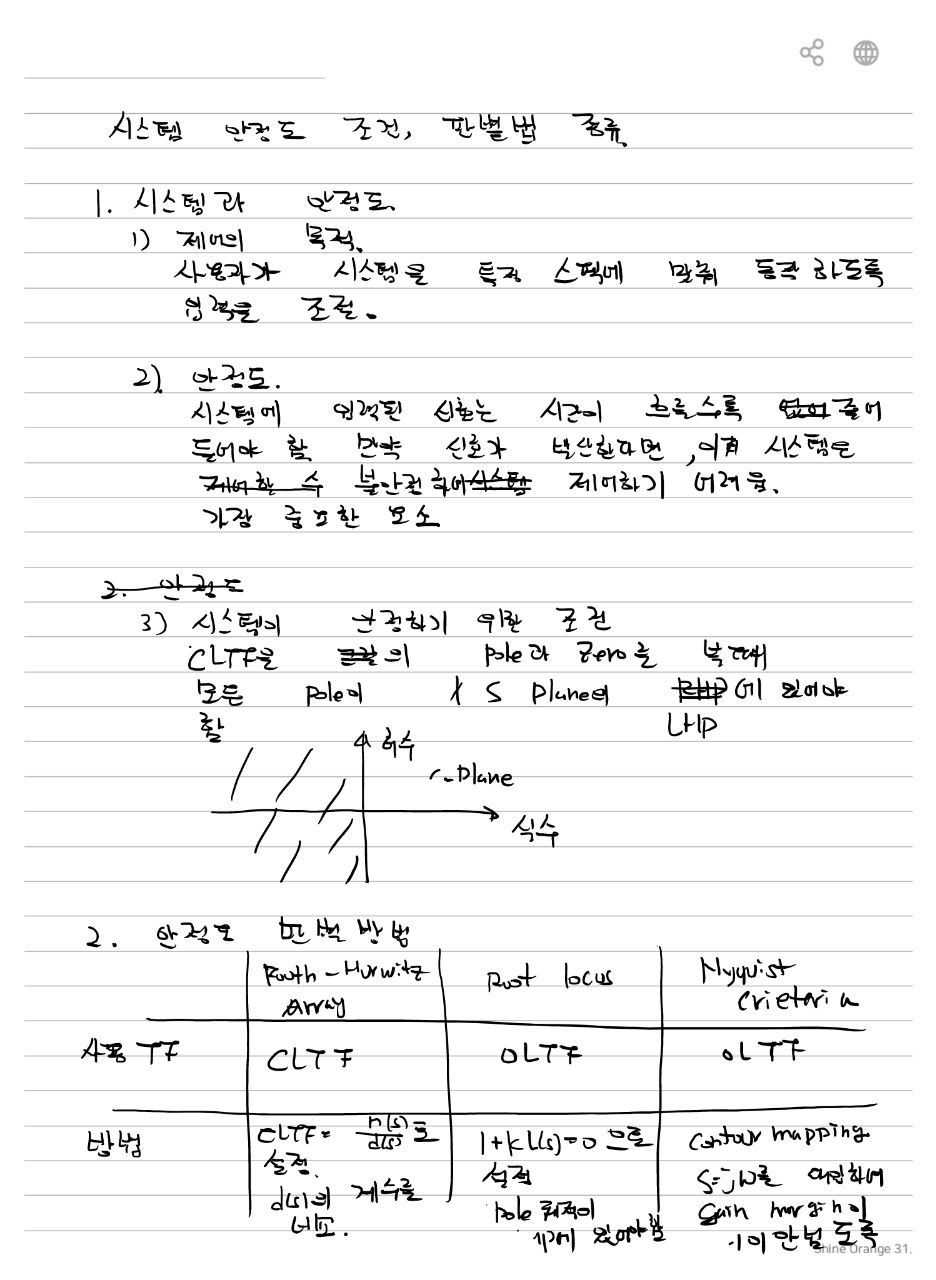 시스템 안정도 조건, 판별법 종류.
1. 시스템과 안정도.
1) 제어의 목적.
사용자가 시스템을 특정 스펙에 맞춰 동작 하도록
입력을 조절.
2) 안정도.
시스템에 입력된 신호는 시간이 흐를수록 없어 줄어
들어야 함 만약 신호가 발산한다면, 이 시스템은
제어할 수 불안정 하여 시스템 제어하기 어려움.
가장 중요한 요소
2. 안정도
3) 시스템이 안정하기 위한 조건
CLTF을 의 pole과 zero를 볼때
모든 pole이 S plane의 RHP에 있어야
함 LHP
허수
S-plane
실수
2. 안정도 판별 방법
Routh-Hurwitz Root locus Nyquist
Array Crieteria
사용 TF CLTF OLTF OLTF
방법 CLTF = n(s)/d(s)로 1+KL(s)=0 으로 contour mapping
설정. 설정 S=jw를 대입하여
d(s)의 계수를 pole 궤적이 Gain margin이
비교. 있어야함 -1이 안넘도록
Shine Orange 31.